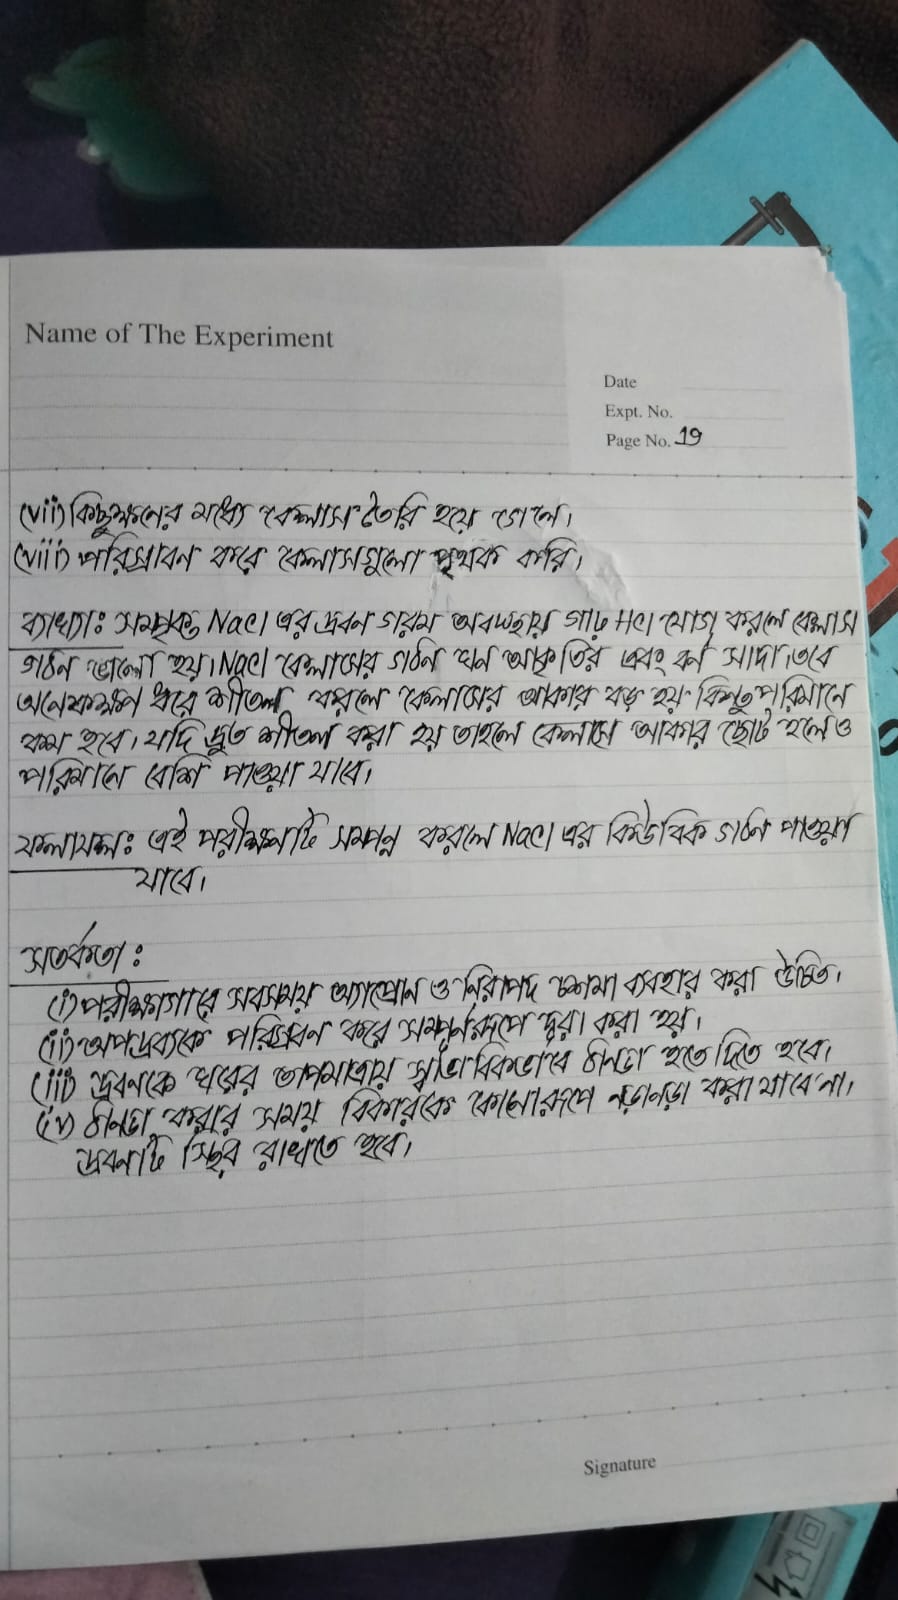 Name of The Experiment
Date
Expt. No.
Page No. 19
(vii) কিছুক্ষনের মধ্যে কেলাস তৈরি হয়ে গেলে।
(viii) পরিস্রাবন করে কেলাসগুলো পৃথক করি।
ব্যাখ্যাঃ সম্পৃক্ত NaCl এর দ্রবন গরম অবস্থায় গাঢ় HCl যোগ করলে কেলাস
গঠন ভালো হয়। NaCl কেলাসের গঠন ঘন আকৃতির এবং বর্ন সাদা। তবে
অনেকক্ষণ ধরে শীতল করলে কেলাসের আকার বড় হয় কিন্তু পরিমানে
কম হবে। যদি দ্রুত শীতল করা হয় তাহলে কেলাসে আকার ছোট হলেও
পরিমানে বেশি পাওয়া যাবে।
ফলাফলঃ এই পরীক্ষাটি সম্পন্ন করলে NaCl এর কিউবিক গঠন পাওয়া
যাবে।
সতর্কতাঃ
(i) পরীক্ষাগারে সবসময় অ্যাপ্রোন ও নিরাপদ চশমা ব্যবহার করা উচিত।
(ii) অপদ্রব্যকে পরিস্রাবন করে সম্পূর্নরূপে দূর করা হয়।
(iii) দ্রবনকে ঘরের তাপমাত্রায় স্বাভাবিকভাবে ঠান্ডা হতে দিতে হবে।
(iv) ঠান্ডা করার সময় বিকারকে কোনোরূপে নড়ানড়া করা যাবে না।
দ্রবনটি স্থির রাখতে হবে।
Signature